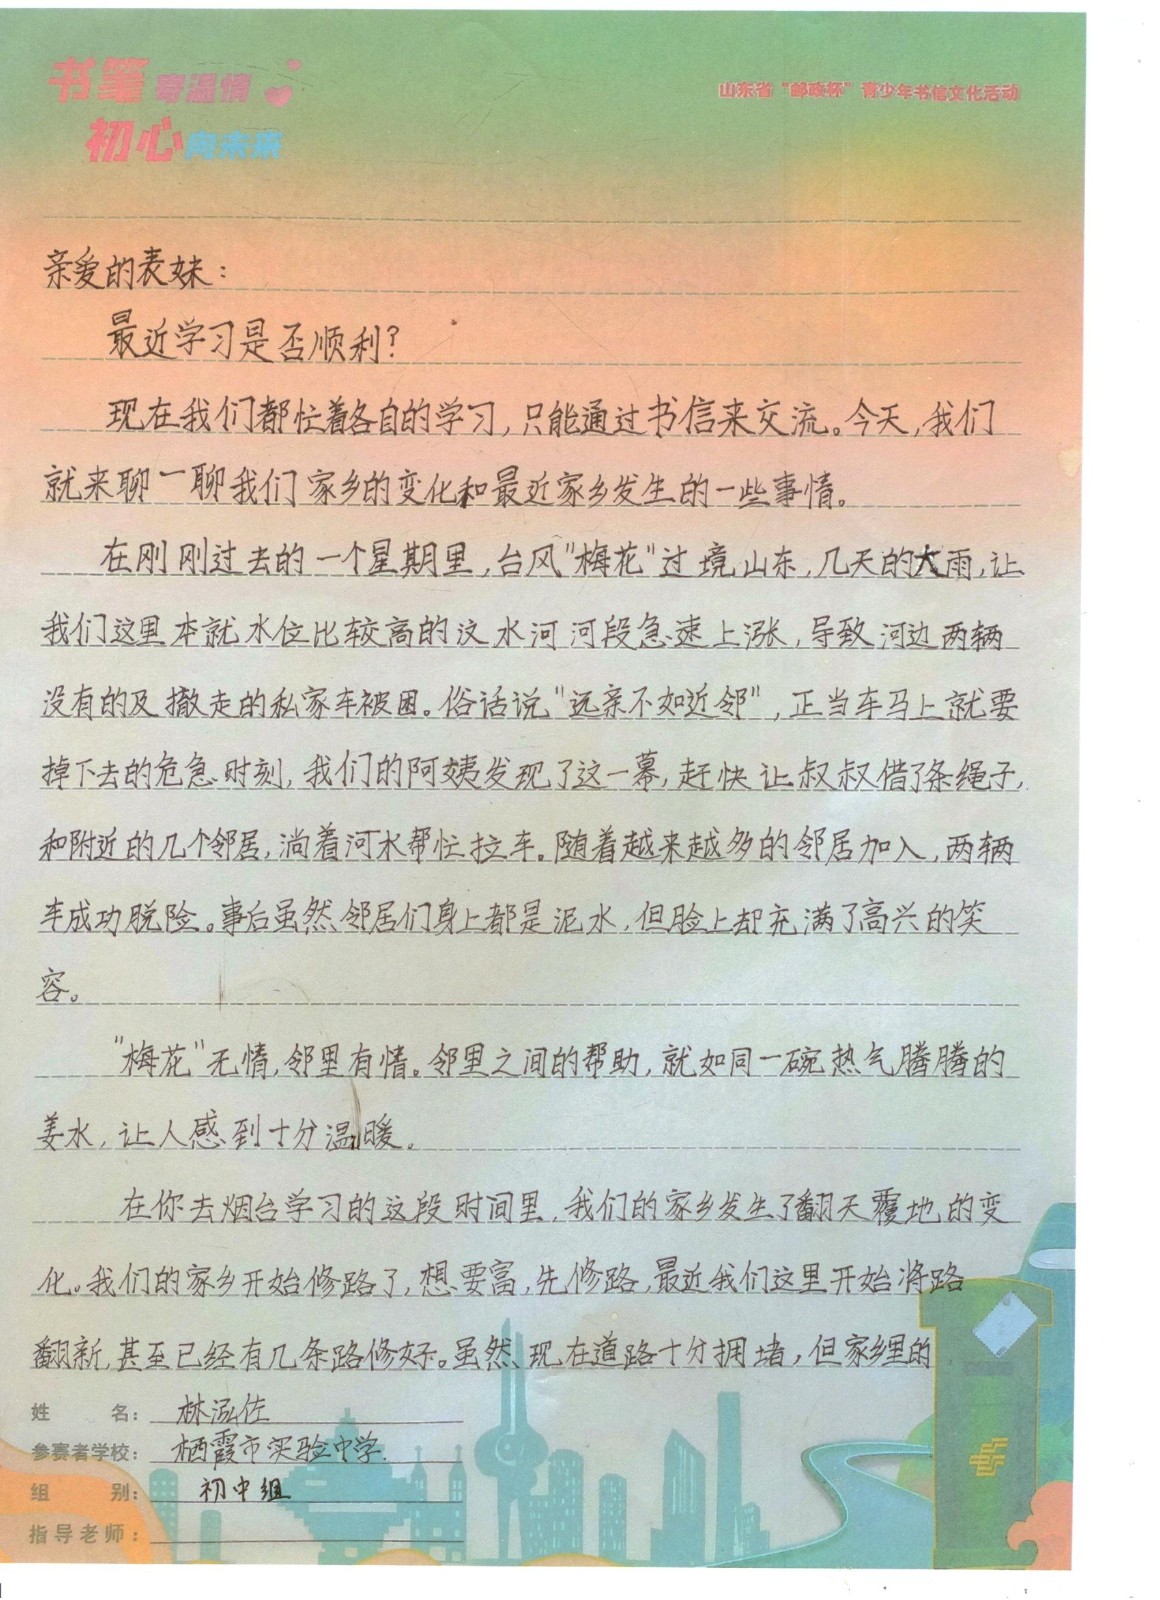 书笔寄温情
初心向未来
山东省“邮政杯”青少年书信文化活动
亲爱的表妹：
最近学习是否顺利？
现在我们都忙着各自的学习，只能通过书信来交流。今天，我们
就来聊一聊我们家乡的变化和最近家乡发生的一些事情。
在刚刚过去的一个星期里，台风“梅花”过境山东，几天的大雨，让
我们这里本就水位比较高的汶水河河段急速上涨，导致河边两辆
没有的及撤走的私家车被困。俗话说“远亲不如近邻”，正当车马上就要
掉下去的危急时刻，我们的阿姨发现了这一幕，赶快让叔叔借了条绳子，
和附近的几个邻居，淌着河水帮忙拉车。随着越来越多的邻居加入，两辆
车成功脱险。事后虽然邻居们身上都是泥水，但脸上却充满了高兴的笑
容。
“梅花”无情，邻里有情。邻里之间的帮助，就如同一碗热气腾腾的
姜水，让人感到十分温暖。
在你去烟台学习的这段时间里，我们的家乡发生了翻天覆地的变
化。我们的家乡开始修路了，想要富，先修路，最近我们这里开始将路
翻新，甚至已经有几条路修好。虽然现在道路十分拥堵，但家乡里的
姓名：林泓佐
参赛者学校：栖霞市实验中学.
组别：初中组
指导老师：